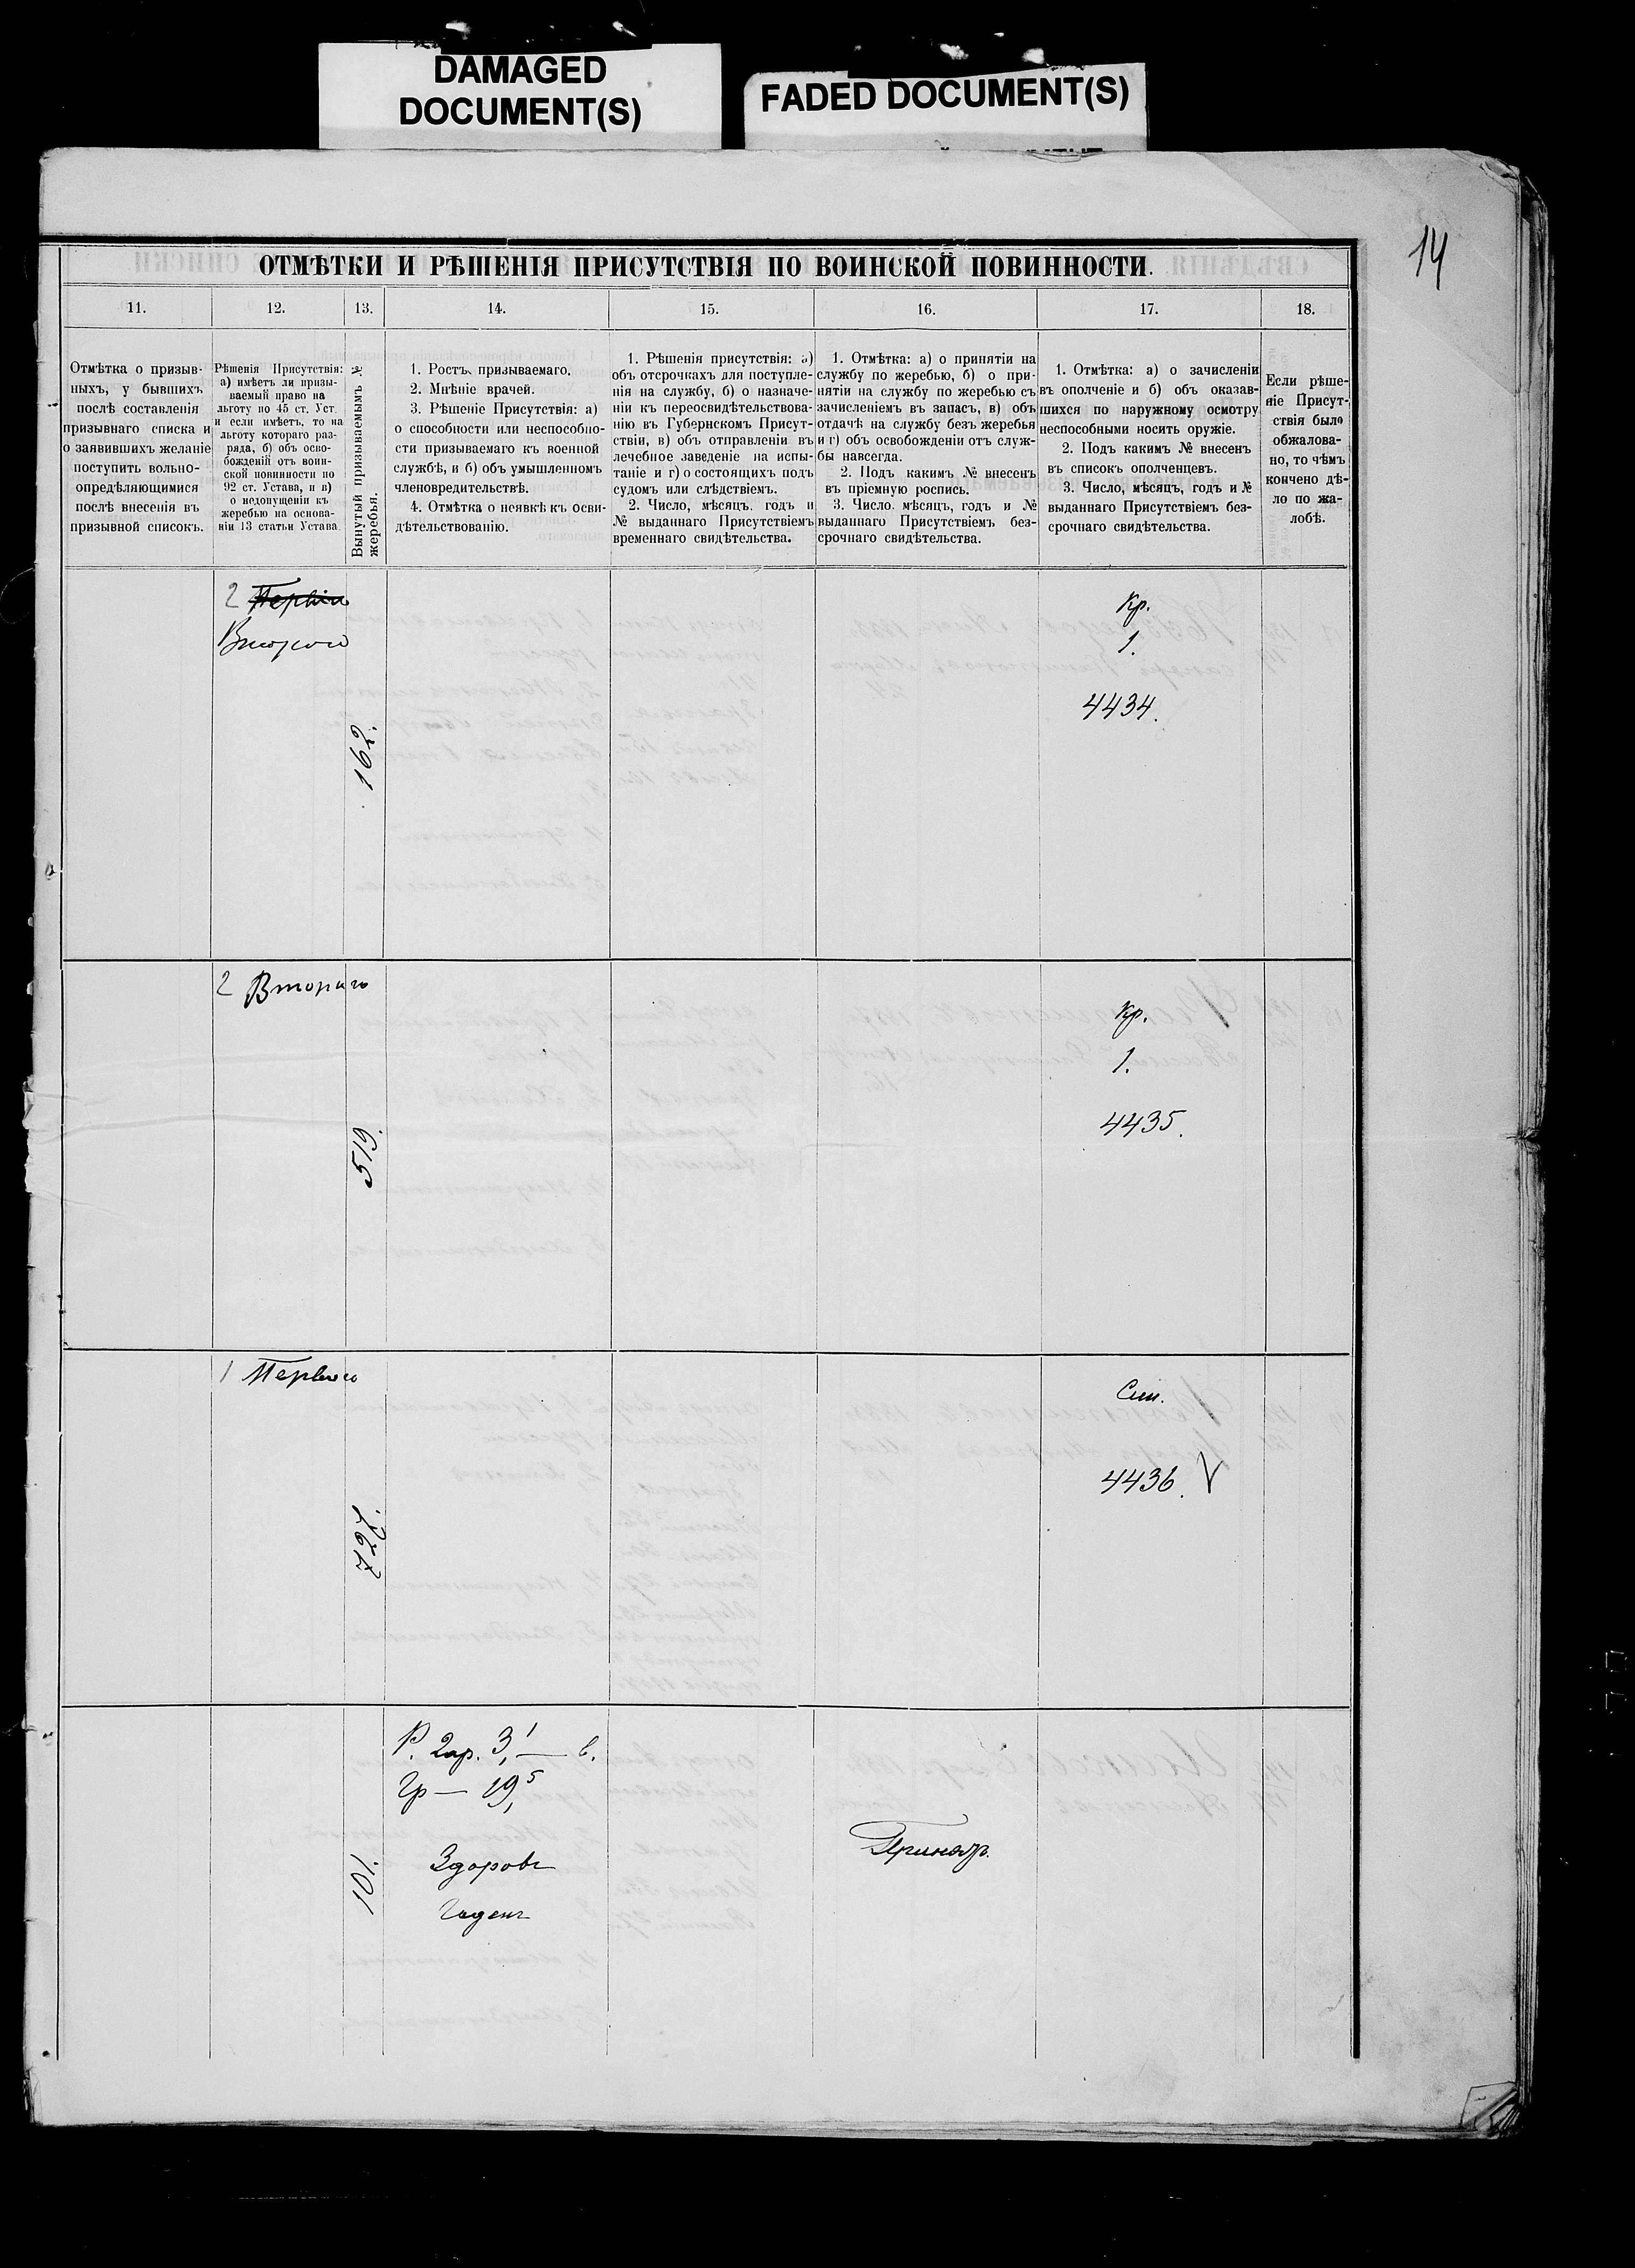 DAMAGED
DOCUMENT(S)
FADED DOCUMENT(S)
14
ОТМѢТКИ И РѢШЕНІЯ ПРИСУТСТВІЯ ПО ВОИНСКОЙ ПОВИННОСТИ.
11. 12. 13. 14. 15. 16. 17. 18.
Отмѣтка о призыв-
ныхъ, у бывшихъ
послѣ составленія
призывнаго списка и
о заявившихъ желаніе
поступить вольно-
опредѣляющимися
послѣ внесенія въ
призывной списокъ.
Рѣшенія Присутствія:
а) имѣетъ ли призы-
ваемый право на
льготу по 45 ст. Уст.
и если имѣетъ, то на
льготу котораго раз-
ряда, б) объ осво-
божденіи отъ воин-
ской повинности по
92 ст. Устава, и в)
о недопущеніи къ
жеребью на основа-
ніи 13 статьи Устава
Вынутый призываемымъ №
жеребья.
1. Ростъ призываемаго.
2. Мнѣніе врачей.
3. Рѣшеніе Присутствія: а)
о способности или неспособно-
сти призываемаго къ военной
службѣ, и б) объ умышленномъ
членовредительствѣ.
4. Отмѣтка о неявкѣ къ осви-
дѣтельствованію.
1. Рѣшенія присутствія: а)
объ отсрочкахъ для поступле-
нія на службу, б) о назначе-
ніи къ переосвидѣтельствова-
нію въ Губернскомъ Присут-
ствіи, в) объ отправленіи въ
лечебное заведеніе на испы-
таніе и г) о состоящихъ подъ
судомъ или слѣдствіемъ.
2. Число, мѣсяцъ, годъ и
№ выданнаго Присутствіемъ
временнаго свидѣтельства.
1. Отмѣтка: а) о принятіи на
службу по жеребью, б) о при-
нятіи на службу по жеребью съ
зачисленіемъ въ запасъ, в) объ
отдачѣ на службу безъ жеребья
и г) объ освобожденіи отъ служ-
бы навсегда.
2. Подъ какимъ № внесенъ
въ пріемную роспись.
3. Число, мѣсяцъ, годъ и №
выданнаго Присутствіемъ без-
срочнаго свидѣтельства.
1. Отмѣтка: а) о зачисленіи
въ ополченіе и б) объ оказав-
шихся по наружному осмотру
неспособными носить оружіе.
2. Подъ какимъ № внесенъ
въ списокъ ополченцевъ.
3. Число, мѣсяцъ, годъ и №
выданнаго Присутствіемъ без-
срочнаго свидѣтельства.
Если рѣше-
ніе Присут-
ствія было
обжалова-
но, то чѣмъ
кончено дѣ-
ло по жа-
лобѣ.
2 Перваго
Второго
162.
Кр.
1.
4434.
2 Второго
519.
Кр.
1.
4435.
1 Перваго
727.
Син.
4436. V
101.
Р. 2 ар. 3,1 — в.
Гр — 19,5
Здоровъ
Годенъ
Принятъ.